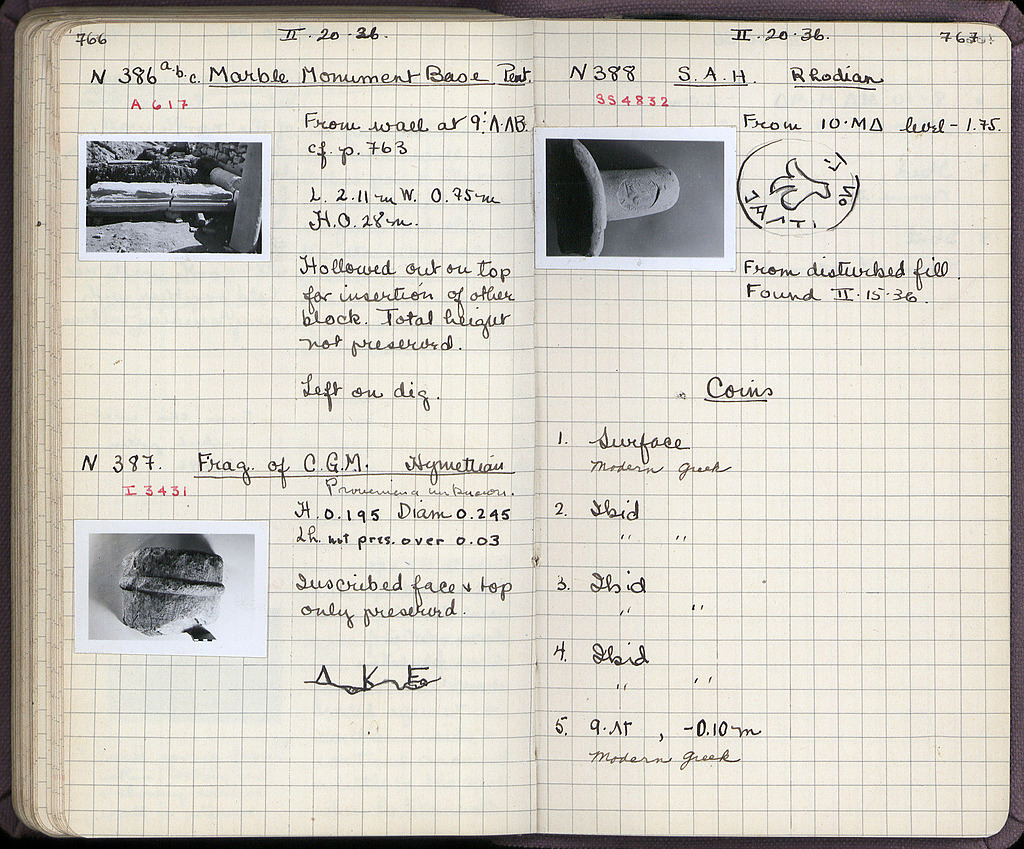 766
II · 20 · 36.
N 386 a.b.c. Marble Monument Base Pent.
A 617
From wall at 9:Λ·ΛΒ.
cf. p. 763
L. 2.11 m W. 0.75 m
H. 0.28 m.
Hollowed out on top
for insertion of other
block. Total height
not preserved.
Left on dig.
N 387. Frag. of C.G.M. Hymettian
I 3431
Provenience unknown.
H. 0.195 Diam 0.245
Lh. not pres. over 0.03
Inscribed face & top
only preserved.
Λ K E
II · 20 · 36.
767
N 388 S.A.H. Rhodian
SS 4832
From 10·ΜΔ level - 1.75.
From disturbed fill.
Found II · 15 · 36.
Coins
1. Surface
Modern Greek
2. Ibid
" "
3. Ibid
" "
4. Ibid
" "
5. 9·ΛΓ , -0.10 m
Modern Greek